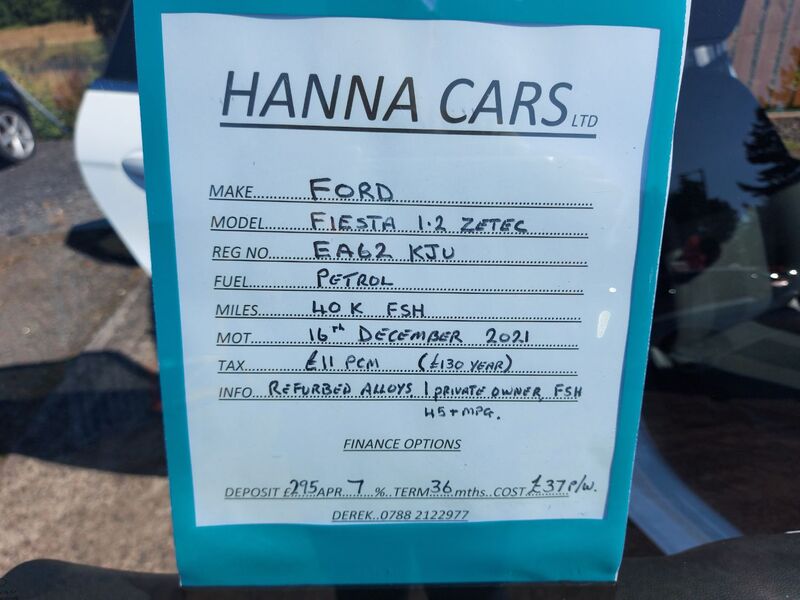 HANNA CARS LTD
MAKE............FORD
MODEL............FIESTA 1.2 ZETEC
REG NO............EA62 KJU
FUEL............PETROL
MILES............40 K FSH
MOT............16TH DECEMBER 2021
TAX............£11 PCM (£130 YEAR)
INFO...REFURBED ALLOYS, 1 PRIVATE OWNER, FSH
45+ MPG.
FINANCE OPTIONS
DEPOSIT £295 APR...7...%..TERM 36 mths..COST £37 P/W.
DEREK..0788 2122977